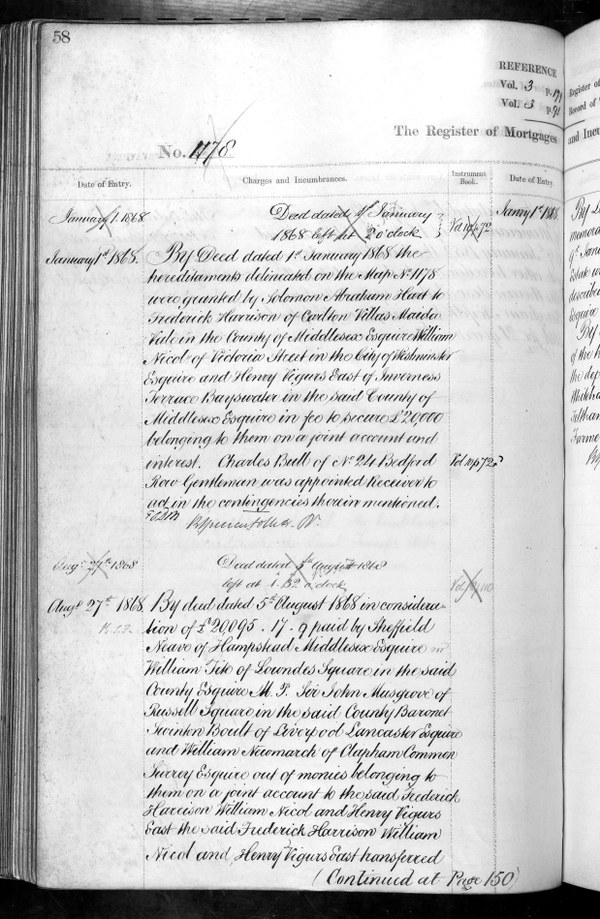 58
REFERENCE
Vol. 3 p. 171
Vol. 3 p.
The Register of Mortgages
No. 1178
Date of Entry.
Charges and Incumbrances.
Instrument Book.
Date of Entry
January 1. 1868
Deed dated 1st January
1868 left at 2 o'clock
January 1st 1868.
By Deed dated 1st January 1868 the
hereditaments delineated on the Map No 1178
were granted by Solomon Abraham Hart to
Frederick Harrison of Carlton Villas Maida
Vale in the County of Middlesex Esquire William
Nicol of Victoria Street in the City of Westminster
Esquire and Henry Vigurs East of Inverness
Terrace Bayswater in the said County of
Middlesex Esquire in fee to secure £20,000
belonging to them on a joint account and
interest. Charles Bull of No 24 Bedford
Row Gentleman was appointed Receiver to
act in the contingencies therein mentioned.
Augt 27th 1868
Deed dated 5th August 1868
left at 1.32 o'clock
Augt 27th 1868.
By deed dated 5th August 1868 in considera-
tion of £20,095.17.9 paid by Sheffield
Neave of Hampstead Middlesex Esquire
William Tite of Lowndes Square in the said
County Esquire M.P. Sir John Musgrove of
Russell Square in the said County Baronet
Swinton Boult of Liverpool Lancaster Esquire
and William Newmarch of Clapham Common
Surrey Esquire out of monies belonging to
them on a joint account to the said Frederick
Harrison William Nicol and Henry Vigurs
East the said Frederick Harrison William
Nicol and Henry Vigurs East transferred
(Continued at Page 150)
Register of
Record of
and Incu
By